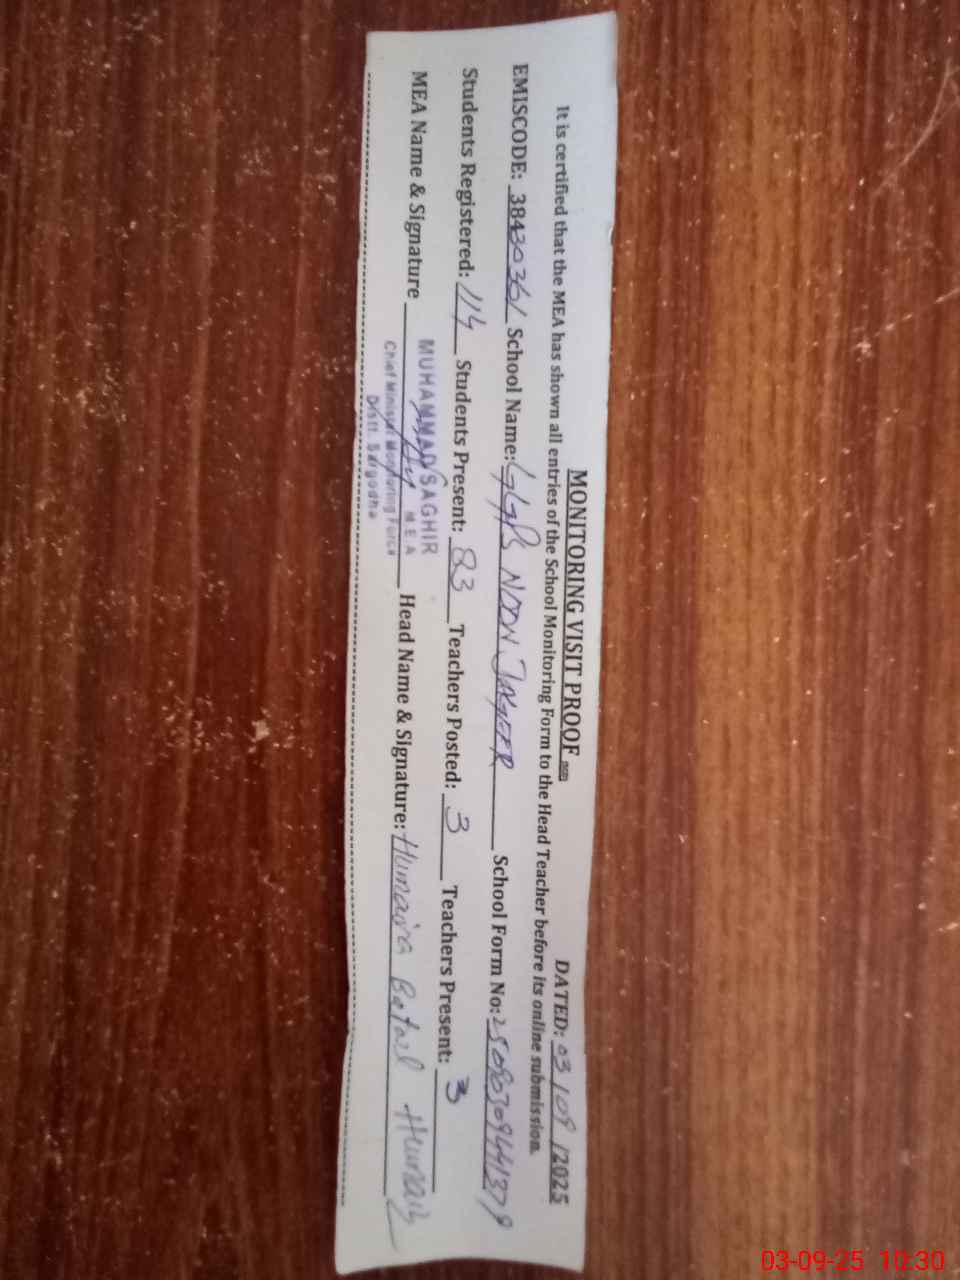 MONITORING VISIT PROOF
DATED: 03/09/2025
It is certified that the MEA has shown all entries of the School Monitoring Form to the Head Teacher before its online submission.
EMISCODE: 38430361 School Name: GGPS NOON School Form No:
Students Registered: 114 Students Present: 83 Teachers Posted: 3 Teachers Present: 3
MEA Name & Signature Head Name & Signature: Humaira
MUHAMMAD SAGHIR
M.E.A
Chief Minister Monitoring Force
Distt. Sargodha
03-09-25 10:30